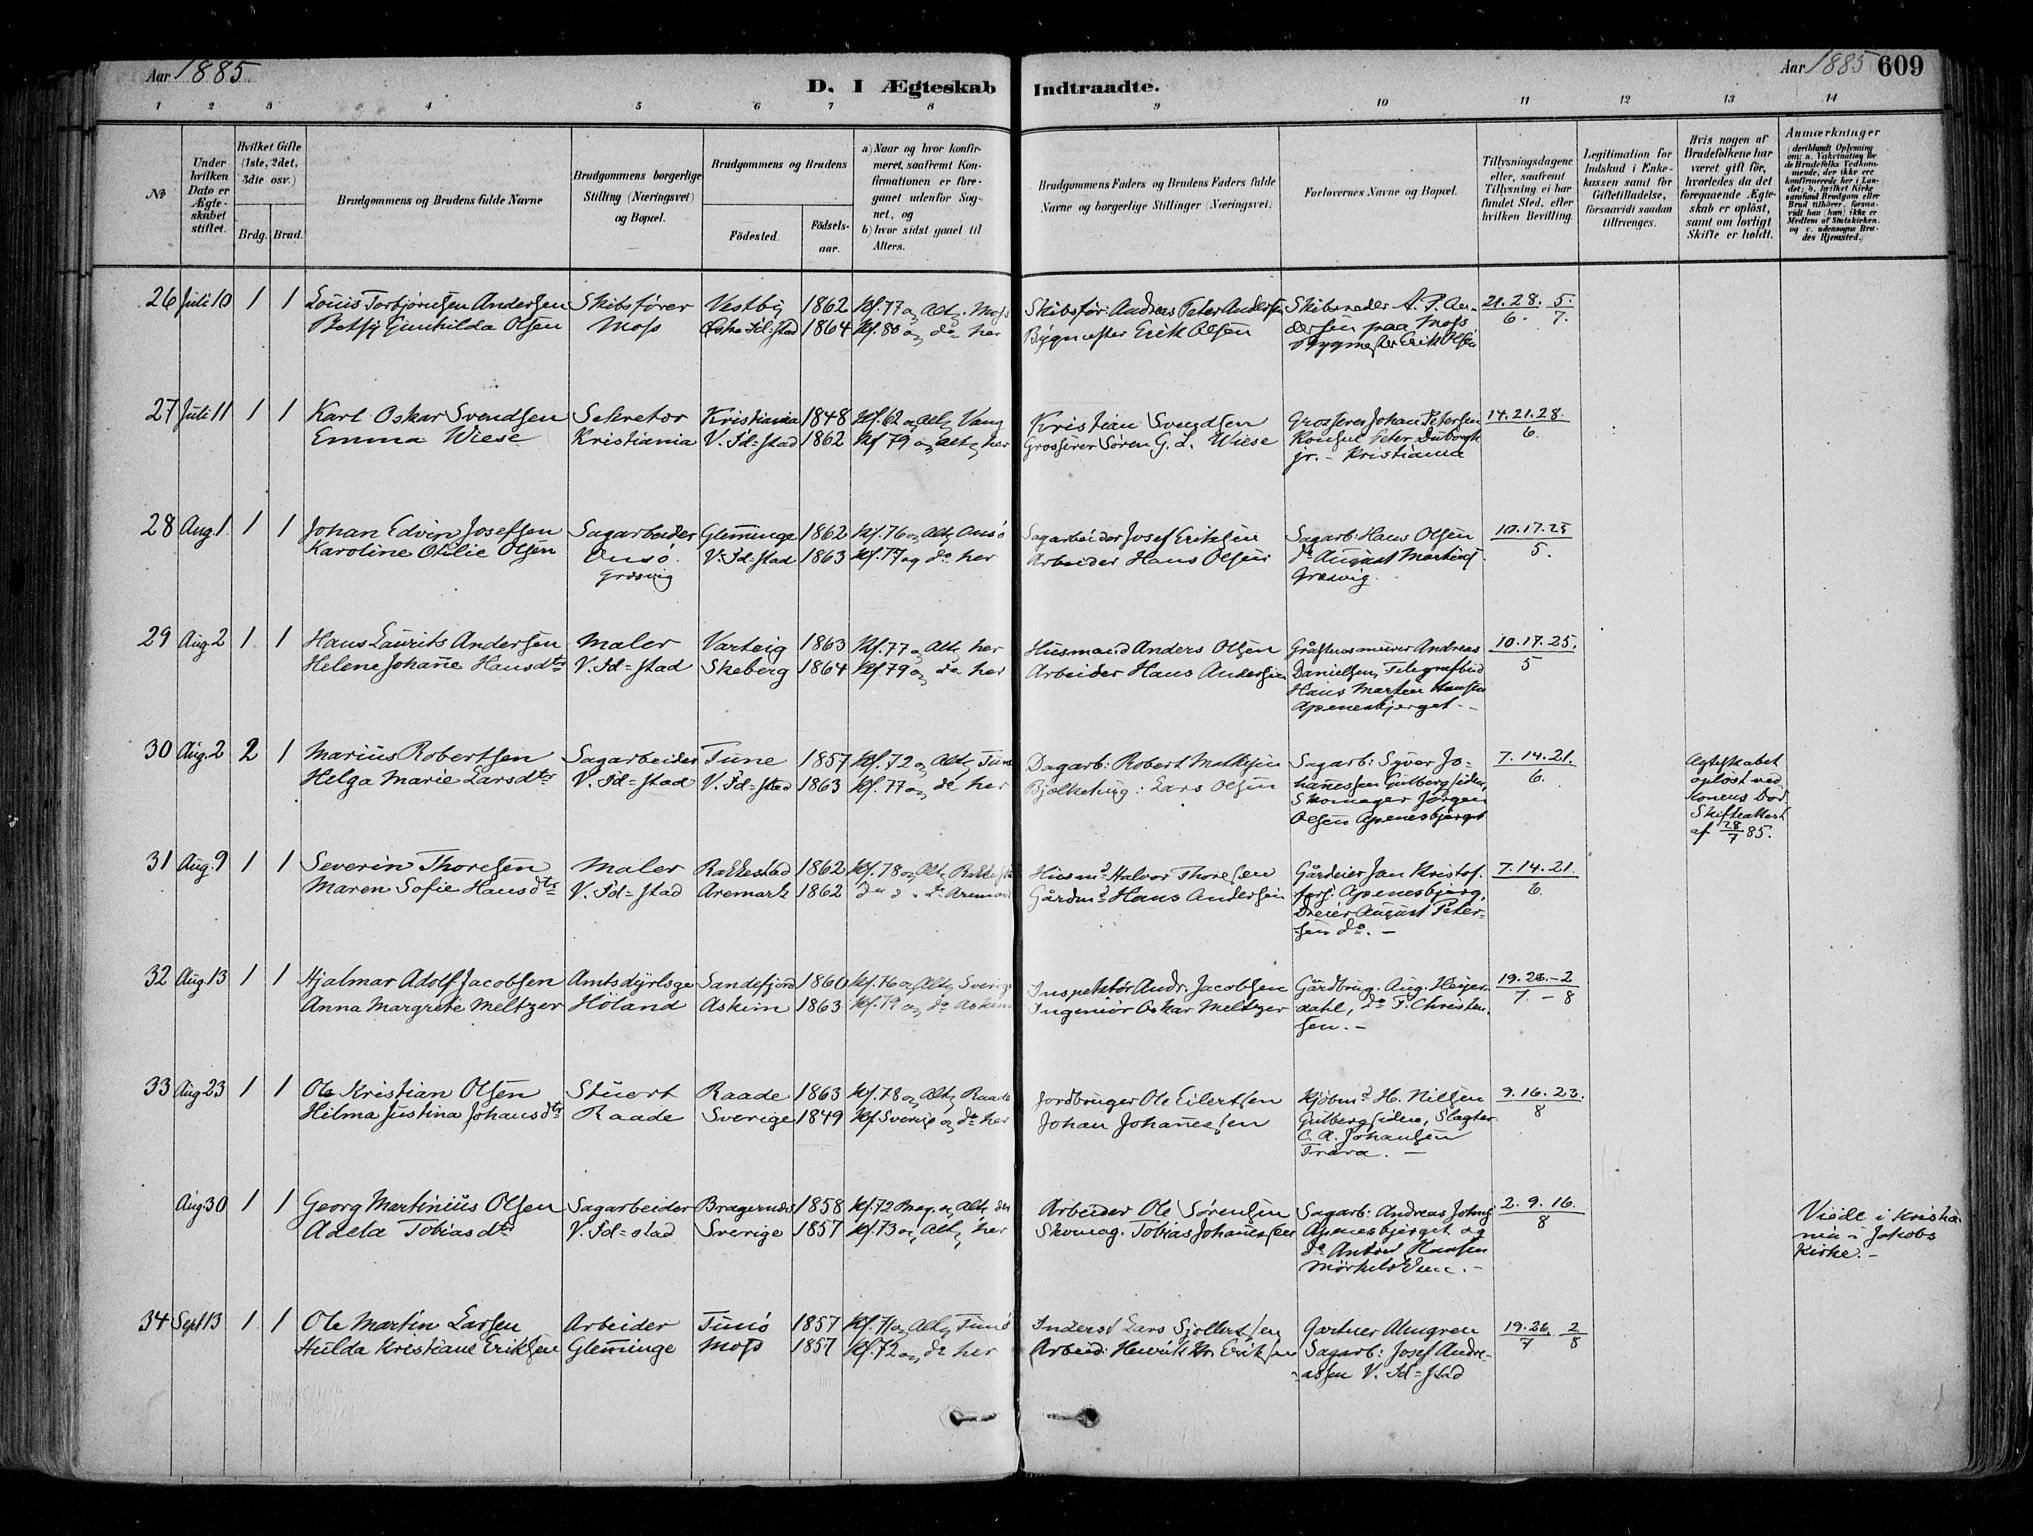 Aar 1885
D. I Ægteskab Indtraadte.
Aar 1885 609
1 2 3 4 5 6 7 8 9 10 11 12 13 14
No
Under hvilken Dato er Ægteskabet stiftet.
Hvilket Gifte (1ste, 2det, 3die osv.)
Brdg. Brud.
Brudgommens og Brudens fulde Navne
Brudgommens borgerlige Stilling (Næringsvei) og Bopæl.
Brudgommens og Brudens
Fødested. Fødsels-aar.
a) Naar og hvor konfirmeret, saafremt Konfirmationen er foregaaet udenfor Sognet, og
b) hvor sidst gaaet til Alters.
Brudgommens Faders og Brudens Faders fulde Navne og borgerlige Stillinger (Næringsvei)
Forlovernes Navne og Bopæl.
Tillysningsdagene eller, saafremt Tillysning ei har fundet Sted, efter hvilken Bevilling.
Legitimation for Indskud i Enkekassen samt for Giftetilladelse, forsaavidt saadan tiltrænges.
Hvis nogen af Brudefolkene har været gift før, hvorledes da det foregaaende Ægteskab er opløst, samt om lovligt Skifte er holdt.
Anmærkninger
(deriblandt Oplysning om: a. Vakcination for de Brudefolks Vedkommende, der ikke ere konfirmerede her i Landet; b. hvilket Kirkesamfund Brudgom eller Brud tilhører, forsaavidt han (hun) ikke er Medlem af Statskirken, og c. udensogns Brudes Hjemsted.)
26 Juli 10 1 1 Louis Torbjørnsen Andersen Skibsfører Vestby 1862 Kf. 77 og Altg. Moss Skibsfør: Andreas Peter Andersen Skibsreder A. P. An- 21. 28. 5.
Betsy Gunhilda Olsen Moss 1864 Kf. 80 og do her Bygmester Erik Olsen dersen paa Moss 6. 7.
Bygmester Erik Olsen
27 Juli 11 1 1 Karl Oskar Svendsen Sekretær Kristiania 1848 Kf. 62 og Altg Vang Kristian Svendsen Grosserer Johan Petersen 14. 21. 28.
Emma Wiese Kristiania V. Fd=stad 1862 Kf 79 og Altg her Grosserer Søren G. L. Wiese Konsul Peter Duborgh 6.
jr. - Kristiania
28 Aug. 1 1 1 Johan Edvin Josefsen Sagarbeider Glemminge 1862 Kf. 76 og Altg Onsø Sagarbeider Josef Eriksen Sagarb: Hans Olsen 10. 17. 25
Karoline Otilie Olsen Onsø. V. Fd=stad 1863 Kf. 77 og do her Arbeider Hans Olsen do August Martins 5.
Græsvig Græsvig.
29 Aug 2 1 1 Hans Laurits Andersen Maler Varteig 1863 Kf. 77 og Altg her Husmand Anders Olsen Gråstensmurer Andreas 10. 17. 25.
Helene Johanne Hansdtr V. Fd=stad Skeberg 1864 Kf. 79 og do her Arbeider Hans Andersen Danielsen, Telegrafbud 5
Hans Martin Hansen
Apenesbjerget -
30 Aug. 2 2 1 Marius Robertsen Sagarbeider Tune 1857 Kf. 72 og Altg Tune Dagarb: Robert Mathisen Sagarb: Syver Jo- 7. 14. 21. Ægteskabet
Helga Marie Larsdtr V. Fd=stad V. Fd=stad 1863 Kf. 77 og do her Lars Olsen hannessen Gulbergsiden, 6. opløst ved
Skomager Jørgen Konens Død
Olsen Apenesbjerget Skifteattest
af 28/7 85.
31 Aug. 9 1 1 Severin Thoresen Maler Rakkestad 1862 Kf. 78 og Altg Husmd Halvor Thoresen Gårdeier Jan Kristof- 7. 14. 21.
Maren Sofie Hansdtr V. Fd=stad Aremark 1862 do Aremark Gårdmd Hans Andersen fers: Apenesbjerg, 6.
Dreier August Peter-
sen do. -
32 Aug 13 1 1 Hjalmar Adolf Jacobsen Amtsdyrlæge Sandefjord 1860 Kf. 76 og Altg Sverige Inspektør Andr. Jacobsen Gårdbrug. Aug. Heyer- 19. 26 - 2
Anna Margrete Meltzer Høland Askim 1863 Kf. 79 og do Askim Ingeniør Oskar Meltzer dahl, do T. Christen- 7. - 8
sen. -
33 Aug 23 1 1 Ole Kristian Olsen Stuert Raade 1863 Kf. 78 og Altg Raade Jordbruger Ole Eilertsen Kjøbmd H. Nilsen 9. 16. 23.
Hilma Justina Johansdtr Raade Sverige 1849 Kf Sverige og do her Johan Johannessen Gulbergsiden, Slagter 8
C. A. Johansen
Trara. -
Aug 30 1 1 Georg Martinius Olsen Sagarbeider Bragernes 1858 Kf. 72 Brag. og Altg der Arbeider Ole Sørensen Sagarb: Andreas Johns 2. 9. 16. Viede i Kristia-
Adela Tobiasdtr V. Fd=stad Sverige 1857 Kf. 73 og Altg her Skomag. Tobias Johannessen Apenesbjerget og 8 nia i Jakobs
do Anton Hansen Kirke. -
34 Sept 13 1 1 Ole Martin Larsen Arbeider Tunø 1857 Kf. 71 og Altg Tunø Inderst Lars Gartner Almgren 19. 26. 2
Hulda Kristiane Eriksen Glemminge Moss 1857 Kf. 72 og do her Arbeid: Henrik Kr. Eriksen Sagarb: Josef Andre- 7 8
assen V. Fd=stad